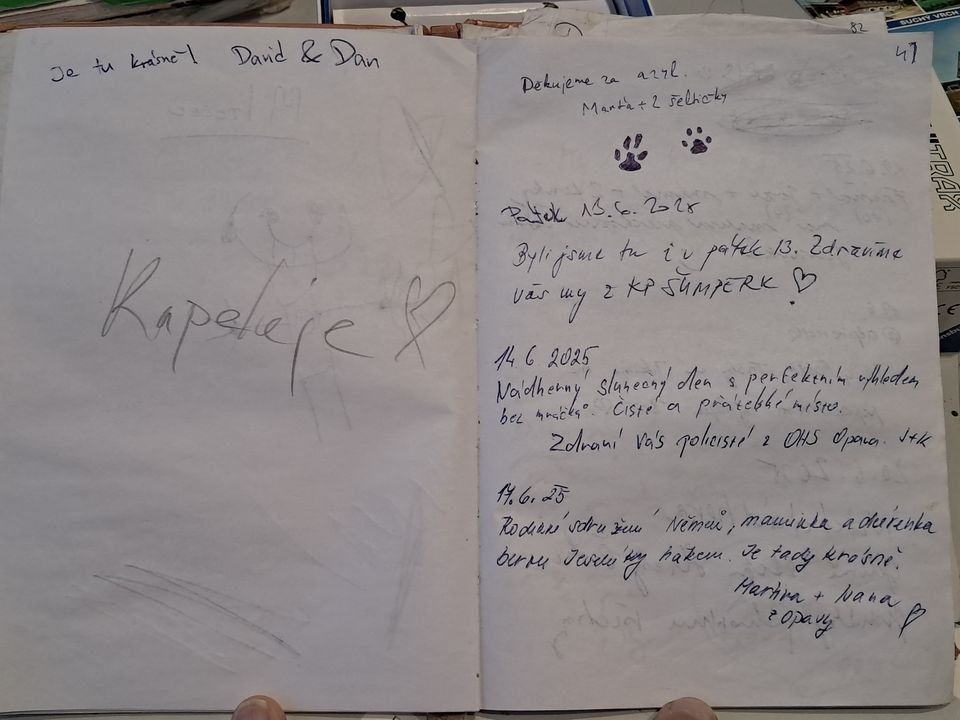 Je tu krásně! David & Dan
Kapeluje
82
41
Děkujeme za azyl.
Marta + 2 šeltičky
Pátek 13.6. 2025
Byli jsme tu i v pátek 13. Zdravíme
vás my z KP ŠUMPERK
14.6 2025
Nádherný slunečný den s perfektním výhledem
bez mráčků. Čisté a přátelské místo.
Zdraví Vás policisté z OHS Opava. J+K
17.6.25
Rodinné sdružení Němců, maminka a dcerenka
berou Jeseníky hákem. Je tady krásně.
Martina + Ivana
z Opavy
SUCHÝ VRCH